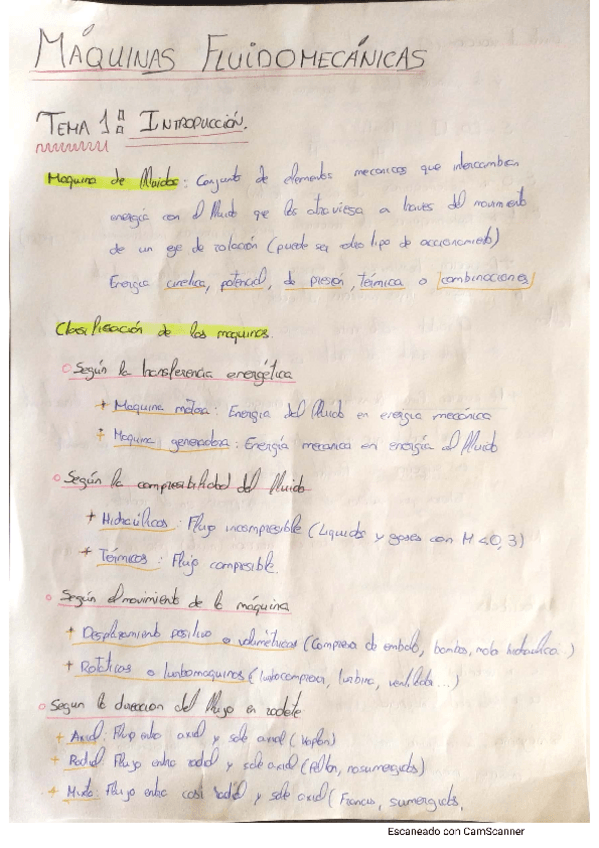 MÁQUINAS FLUIDOMECÁNICAS
TEMA 1: INTRODUCCIÓN.
Maquina de fluidos: Conjunto de elementos mecanicos que intercambian
energía con el fluido que los atraviesa a traves del movimiento
de un eje de rotación (puede ser otro tipo de accionamiento)
Energía cinetica, potencial, de presión, térmica o combinaciones
Clasificación de las maquinas.
Según la transferencia energética
+ Maquina motora: Energía del fluido en energía mecánica
+ Maquina generadora: Energía mecanica en energía al fluido
Según la compresibilidad del fluido
+ Hidraúlicas: Flujo incompresible (Liquidos y gases con M<0,3)
+ Térmicas: Flujo compresible.
Según el movimiento de la máquina
+ Desplazamiento positivo o volumétricas (Compresor de embolo, bombas, moto hidraulica...)
+ Rotóticas o turbomaquinas (turbocompresor, turbina, ventilador...)
Segun la direccion del flujo en rodete
+ Axial: Flujo entra axial y sale axial (Kaplan)
+ Radial: Flujo entra radial y sale axial (Pelton, no sumergidas)
+ Mixto: Flujo entra casi radial y sale axial (Francis, sumergidas,
Escaneado con CamScanner